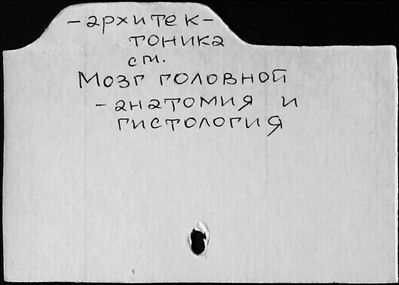 -архитек-
тоника
см.
Мозг головной
-анатомия и
гистология